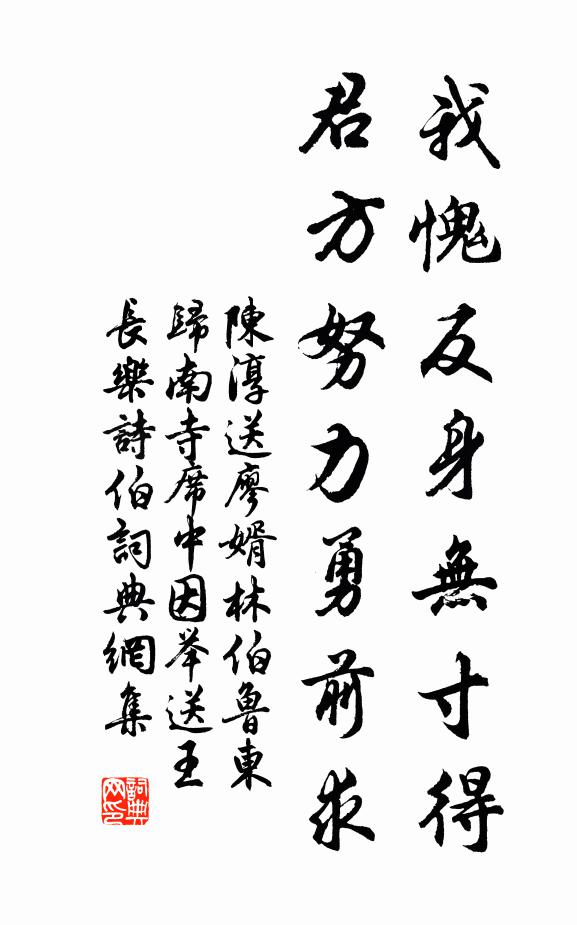 我愧反身無寸得
君方努力勇前求
陳淳送廖婿林伯魯東
歸南寺席中因举送王
長樂詩伯詞典網集
詞典
网印